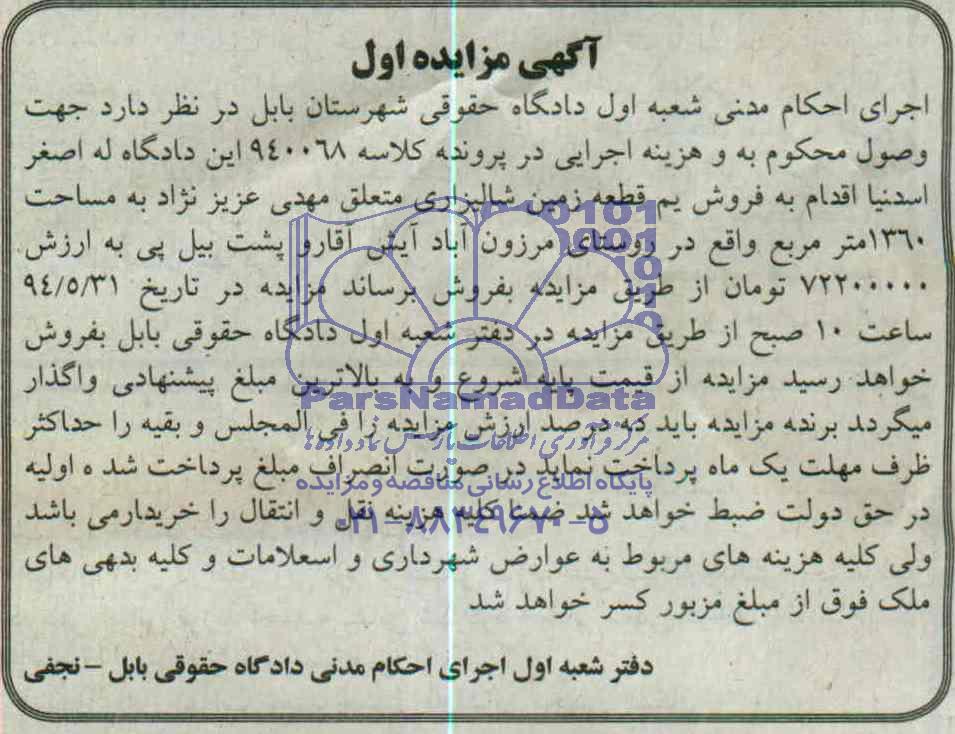 آگهی مزایده اول
اجرای احکام مدنی شعبه اول دادگاه حقوقی شهرستان بابل در نظر دارد جهت
وصول محکوم به و هزینه اجرایی در پرونده کلاسه ۹٤۰۰٦۸ این دادگاه له اصغر
اسدنیا اقدام به فروش یم قطعه زمین شالیزاری متعلق مهدی عزیز نژاد به مساحت
۱۳٦۰متر مربع واقع در روستای مرزون آباد آیش آقارو پشت بیل پی به ارزش
۷۲۲۰۰۰۰۰ تومان از طریق مزایده بفروش برساند مزایده در تاریخ ۹٤/٥/۳۱
ساعت ۱۰ صبح از طریق مزایده در دفتر شعبه اول دادگاه حقوقی بابل بفروش
خواهد رسید مزایده از قیمت پایه شروع و به بالاترین مبلغ پیشنهادی واگذار
میگردد برنده مزایده باید ده درصد ارزش مزایده را فی المجلس و بقیه را حداکثر
ظرف مهلت یک ماه پرداخت نماید در صورت انصراف مبلغ پرداخت شد ه اولیه
در حق دولت ضبط خواهد شد ضمنا کلیه هزینه نقل و انتقال را خریدارمی باشد
ولی کلیه هزینه های مربوط به عوارض شهرداری و اسعلامات و کلیه بدهی های
ملک فوق از مبلغ مزبور کسر خواهد شد
دفتر شعبه اول اجرای احکام مدنی دادگاه حقوقی بابل – نجفی
ParsNamadData
مرکز فرآوری اطلاعات پارس نماد داده ها
پایگاه اطلاع رسانی مناقصه و مزایده
۰۲۱–۸۸۳٤۹٦۷۰–٥